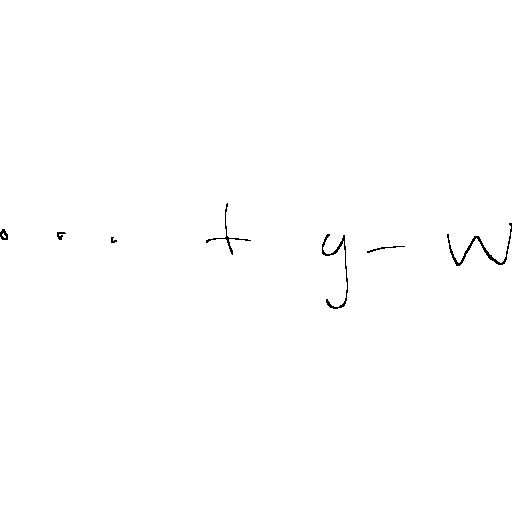 ... + y - w